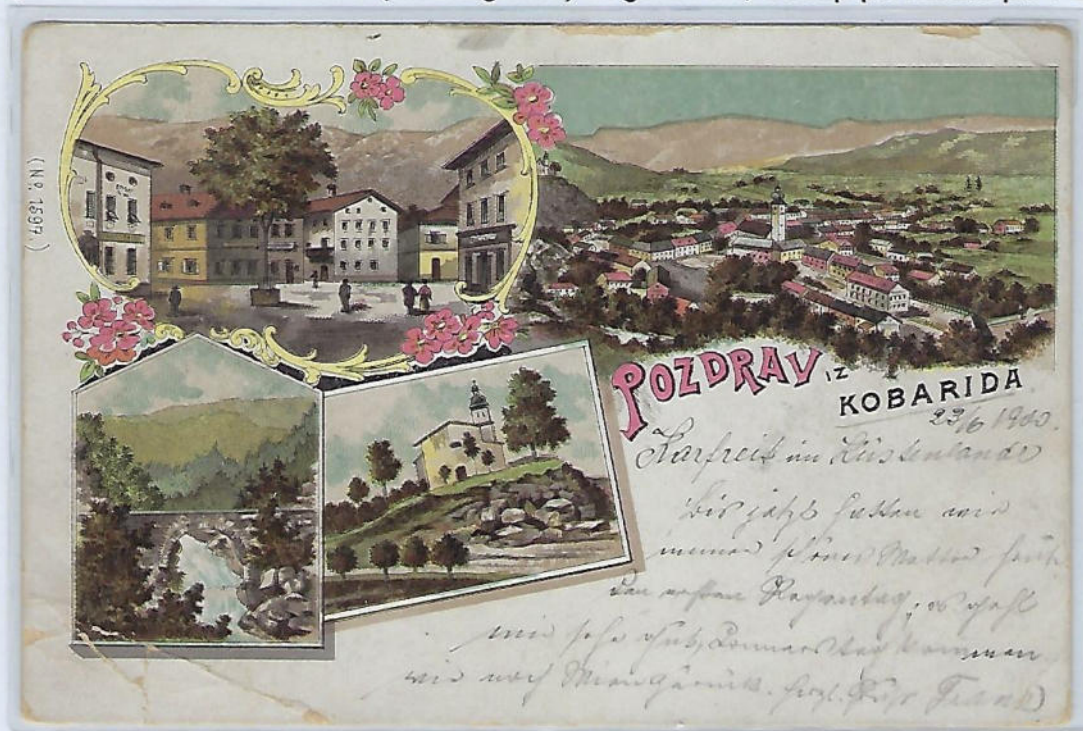 (No. 1597.)
POZDRAV IZ
KOBARIDA
23/6 1900.
Karfreit im Küstenlande
bis jetzt hatten wir
immer schönes Wetter heute
den ersten Regentag, es geht
mir sehr gut, Donnerstag kommen
wir nach Wien zurück. Herzl.